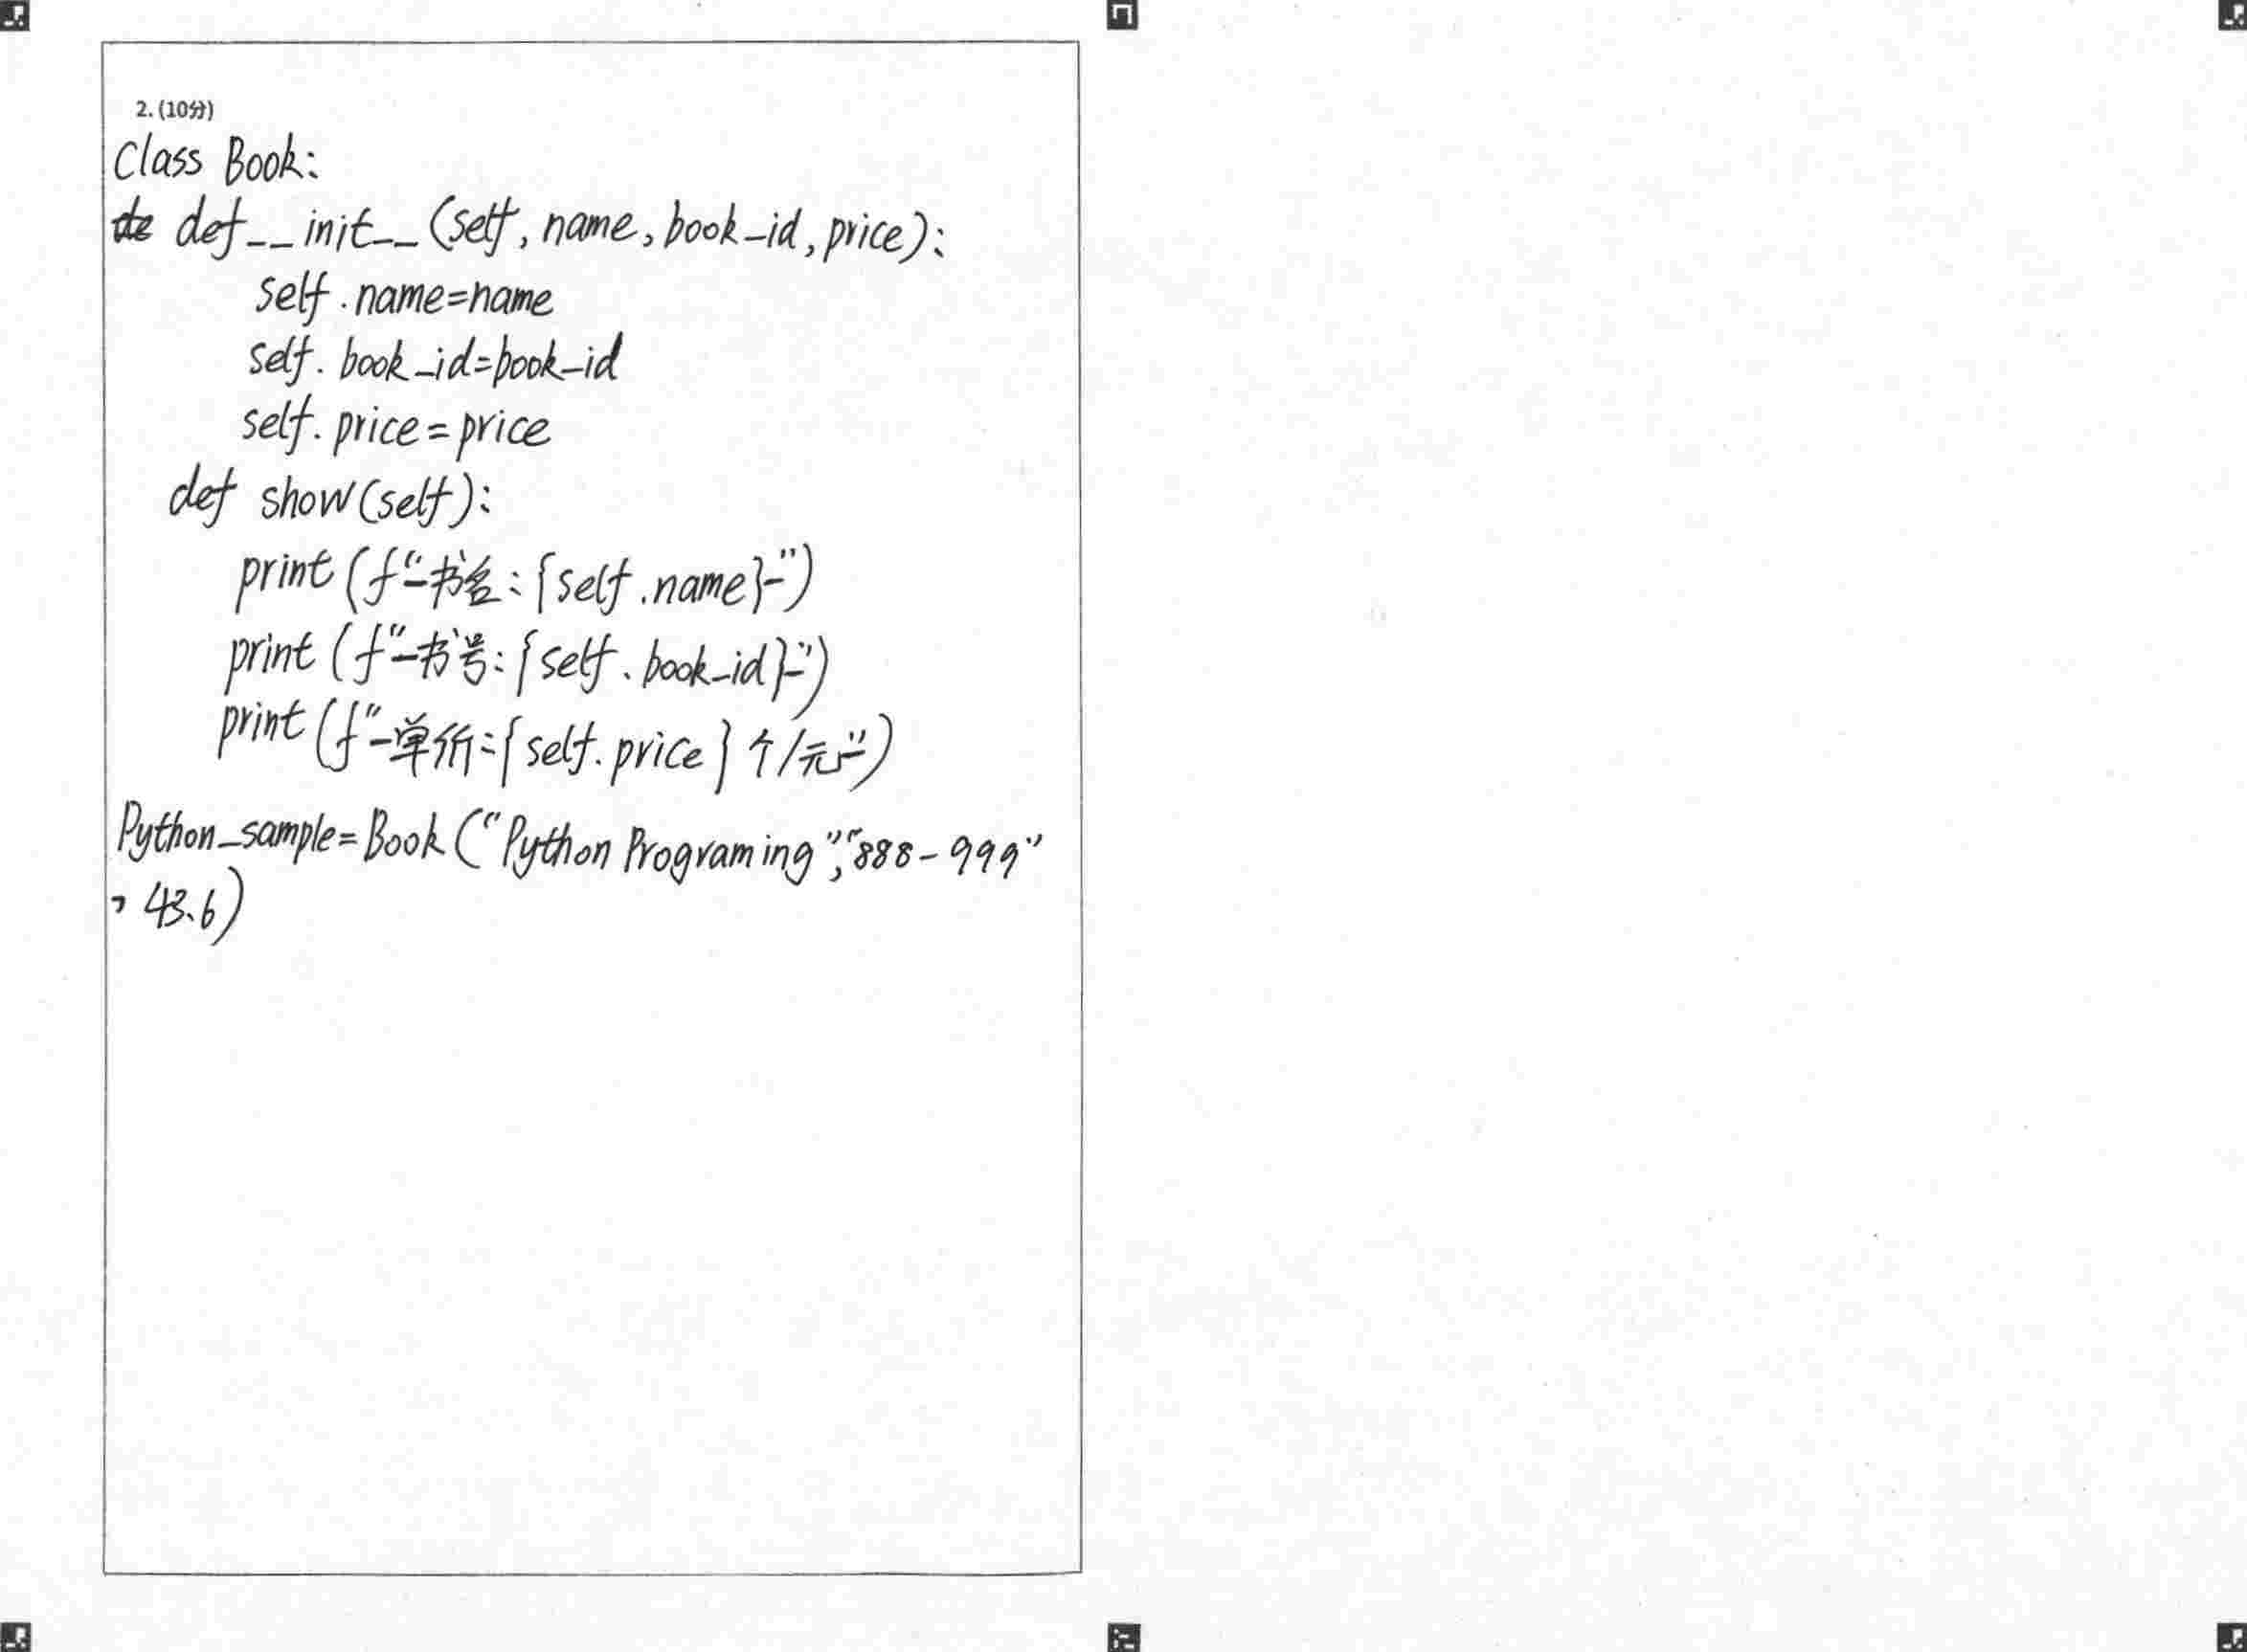 2. (10分)
Class Book:
def__init__(self, name, book_id, price):
self.name=name
self.book_id=book_id
self.price=price
def show(self):
print(f"-书名:{self.name}-")
print(f"-书号:{self.book_id}-")
print(f"-单价:{self.price}个/元-")
Python_sample=Book("Python Programing","888-999"
,43.6)